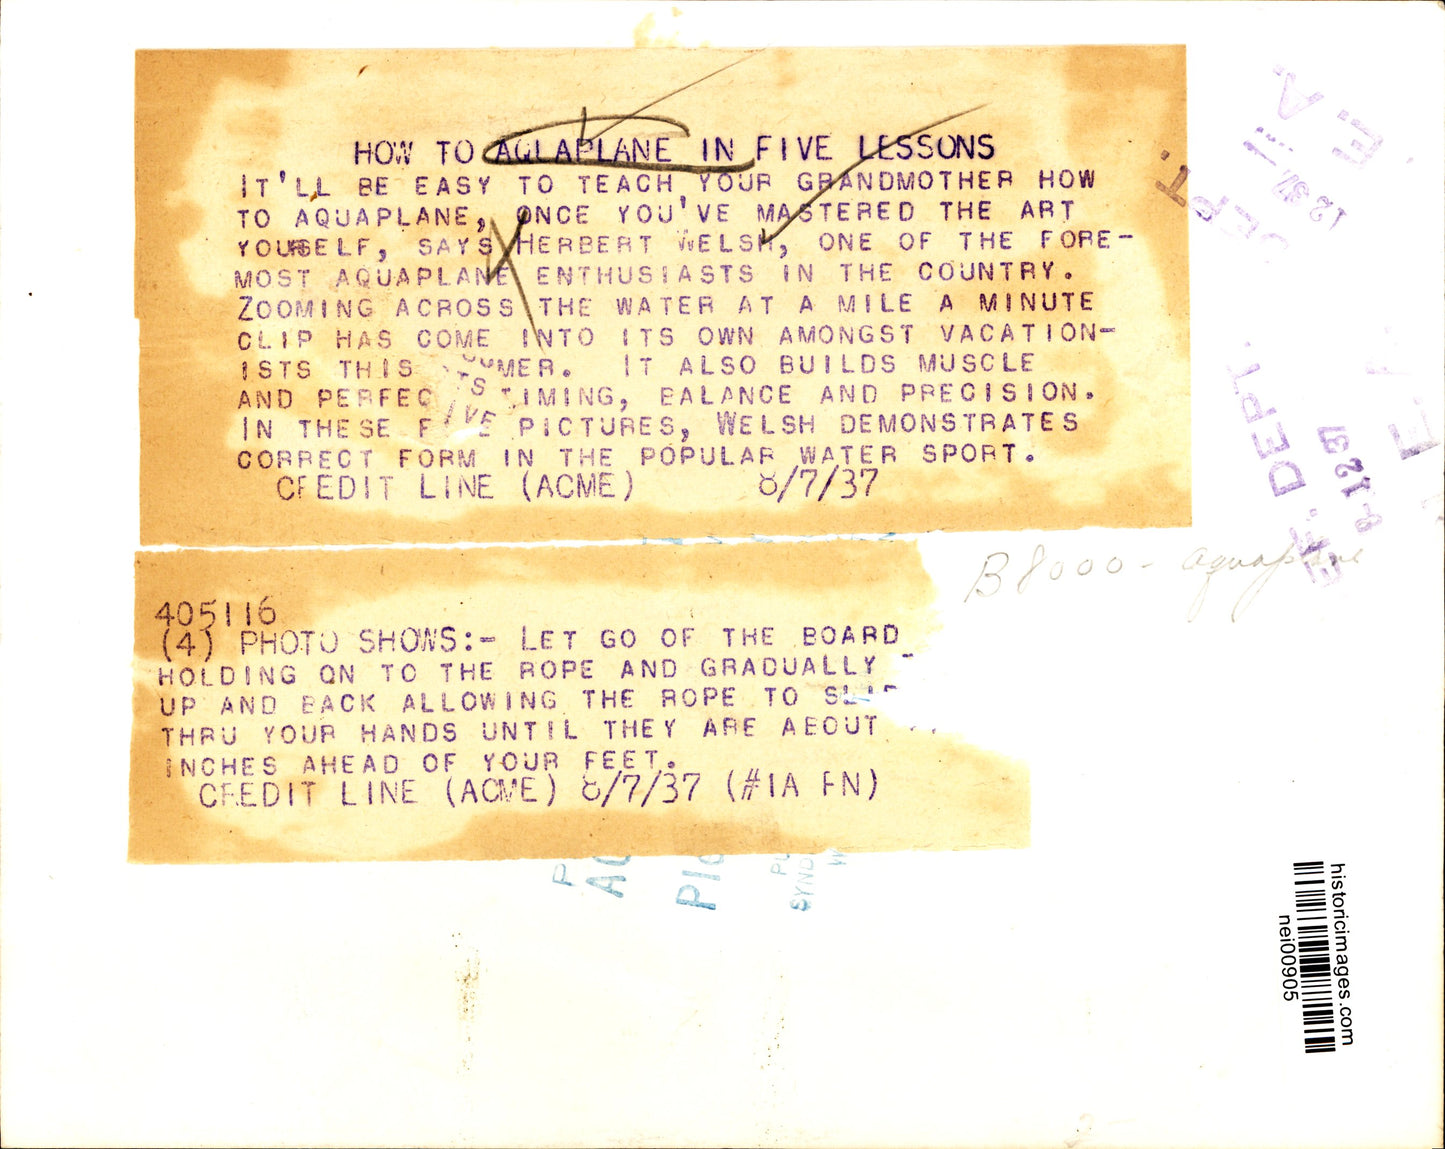 HOW TO AQUAPLANE IN FIVE LESSONS
IT'LL BE EASY TO TEACH YOUR GRANDMOTHER HOW
TO AQUAPLANE, ONCE YOU'VE MASTERED THE ART
YOURSELF, SAYS HERBERT WELSH, ONE OF THE FORE-
MOST AQUAPLANE ENTHUSIASTS IN THE COUNTRY.
ZOOMING ACROSS THE WATER AT A MILE A MINUTE
CLIP HAS COME INTO ITS OWN AMONGST VACATION-
ISTS THIS SUMMER. IT ALSO BUILDS MUSCLE
AND PERFECTS TIMING, BALANCE AND PRECISION.
IN THESE FIVE PICTURES, WELSH DEMONSTRATES
CORRECT FORM IN THE POPULAR WATER SPORT.
CREDIT LINE (ACME) 8/7/37
B8000 - aquaplane
405116
(4) PHOTO SHOWS:- LET GO OF THE BOARD
HOLDING ON TO THE ROPE AND GRADUALLY
UP AND BACK ALLOWING THE ROPE TO SLIP
THRU YOUR HANDS UNTIL THEY ARE ABOUT
INCHES AHEAD OF YOUR FEET.
CREDIT LINE (ACME) 8/7/37 (#1A FN)
E. A.
DEPT.
12 37
historicimages.com
nei00905